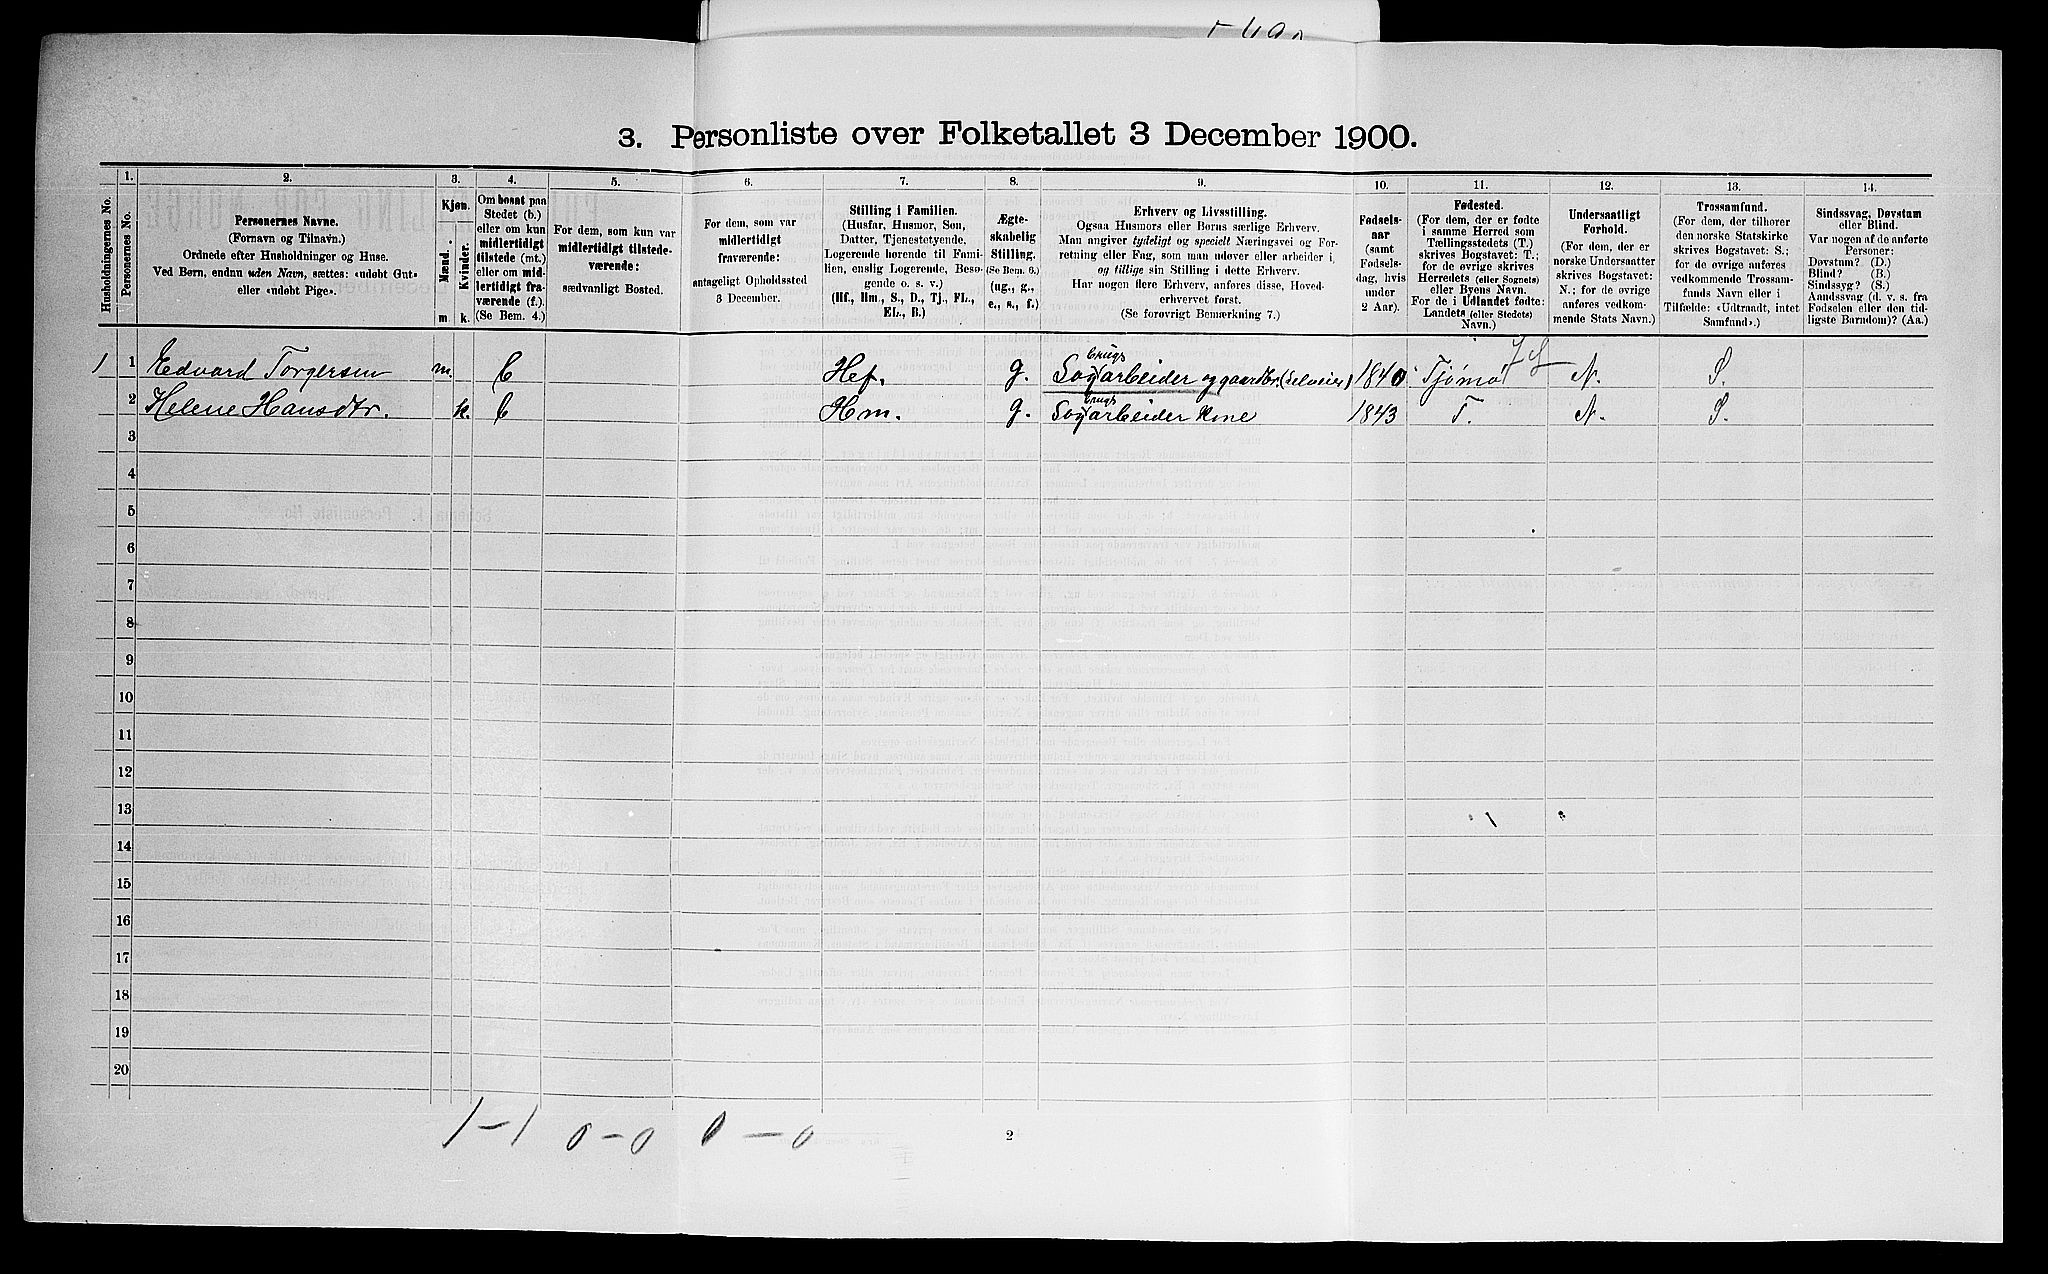 3. Personliste over Folketallet 3 December 1900.
1. 2. 3. 4. 5. 6. 7. 8. 9. 10. 11. 12. 13. 14.
Husholdningernes No.
Personernes No.
Personernes Navne.
(Fornavn og Tilnavn.)
Ordnede efter Husholdninger og Huse.
Ved Børn, endnu uden Navn, sættes: «udøbt Gut»
eller «udøbt Pige».
Kjøn.
Mænd.
Kvinder.
m. k.
Om bosat paa
Stedet (b.)
eller om kun
midlertidigt
tilstede (mt.)
eller om mid-
lertidigt fra-
værende (f.)
(Se Bem. 4.)
For dem, som kun var
midlertidigt tilstede-
værende:
sædvanligt Bosted.
For dem, som var
midlertidigt
fraværende:
antageligt Opholdssted
3 December.
Stilling i Familien.
(Husfar, Husmor, Søn,
Datter, Tjenestetyende,
Logerende hørende til Fami-
lien, enslig Logerende, Besø-
gende o. s. v.)
(Hf., Hm., S., D., Tj., FL.,
EL., B.)
Ægte-
skabelig
Stilling.
(Se Bem. 6.)
(ug., g.,
e., s., f.)
Erhverv og Livsstilling.
Ogsaa Husmors eller Børns særlige Erhverv.
Man angiver tydeligt og specielt Næringsvei og For-
retning eller Fag, som man udøver eller arbeider i,
og tillige sin Stilling i dette Erhverv.
Har nogen flere Erhverv, anføres disse, Hoved-
erhvervet først.
(Se forøvrigt Bemærkning 7.)
Fødsels-
aar
(samt
Fødsels-
dag, hvis
under
2 Aar).
Fødested.
(For dem, der er fødte
i samme Herred som
Tællingsstedets (T.)
skrives Bogstavet: T.;
for de øvrige skrives
Herredets (eller Sognets)
eller Byens Navn.
For de i Udlandet fødte:
Landets (eller Stedets)
Navn.)
Undersaatligt
Forhold.
(For dem, der er
norske Undersaatter
skrives Bogstavet:
N.; for de øvrige
anføres vedkom-
mende Stats Navn.)
Trossamfund.
(For dem, der tilhører
den norske Statskirke
skrives Bogstavet: S.;
for de øvrige anføres
vedkommende Trossam-
funds Navn eller i
Tilfælde: «Udtraadt, intet
Samfund».)
Sindssvag, Døvstum
eller Blind.
Var nogen af de anførte
Personer:
Døvstum? (D.)
Blind? (B.)
Sindssyg? (S.)
Aandssvag (d. v. s. fra
Fødselen eller den tid-
ligste Barndom)? (Aa.)
1 1 Edvard Torgersen m. b Hef. g. Sagbrugsarbeider og gaardbr. (selveier) 1840 Tjømø N. S.
2 Helene Hansdtr. k. b Hm. g. Sagbrugsarbeider Kone 1843 T. N. S.
3
4
5
6
7
8
9
10
11
12
13
14
15
16
17
18
19
20
1-1 0-0 0-0
2